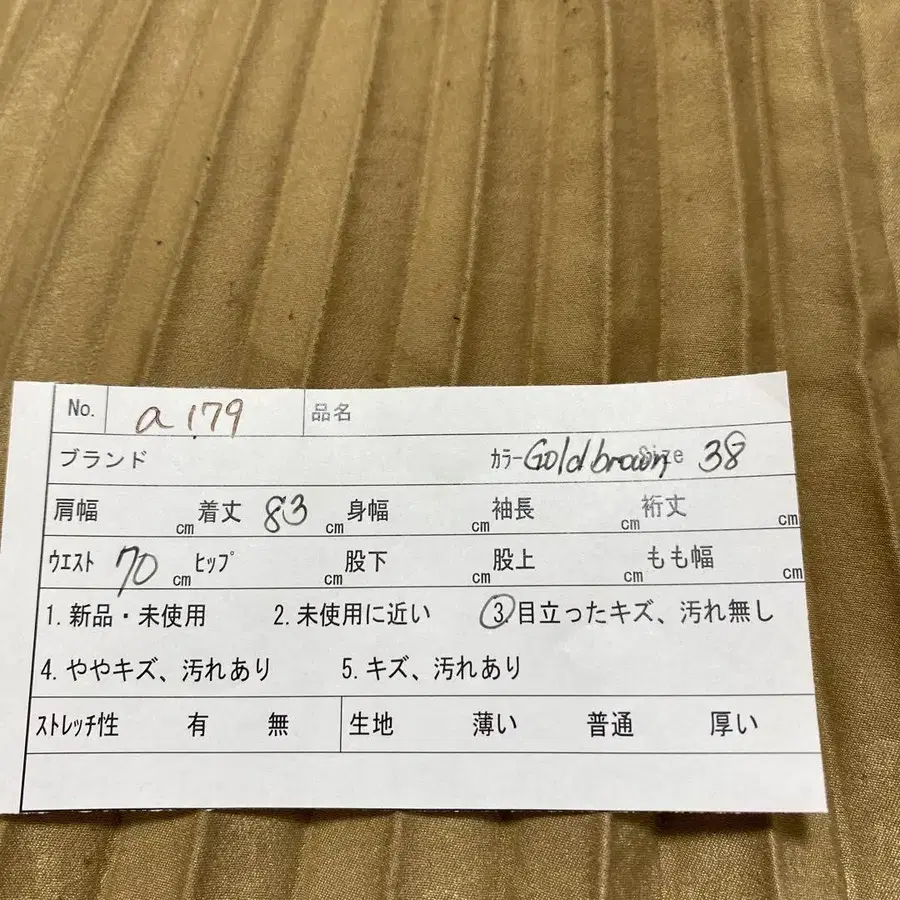 No. a 179 品名
ブランド カラー Gold brown Size 38
肩幅 cm 着丈 83 cm 身幅 cm 袖長 cm 裄丈 cm
ウエスト 70 cm ヒップ cm 股下 cm 股上 cm もも幅 cm
1. 新品・未使用 2. 未使用に近い ③. 目立ったキズ、汚れ無し
4. ややキズ、汚れあり 5. キズ、汚れあり
ストレッチ性 有 無 生地 薄い 普通 厚い